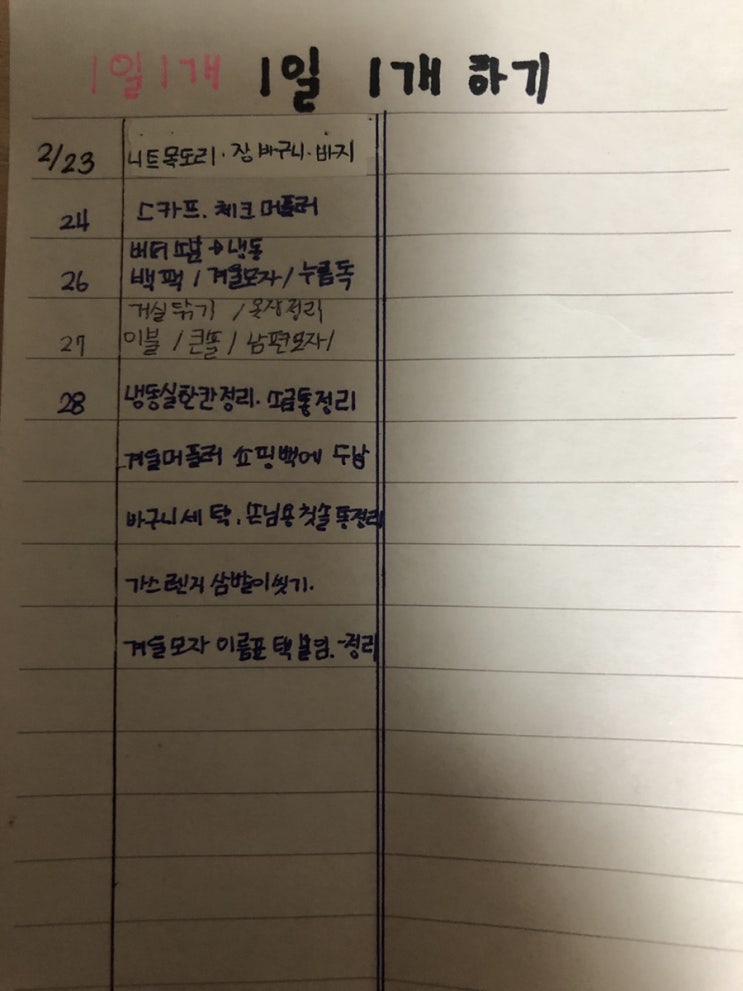 1일1개 1일 1개 하기
2/23 니트목도리. 장바구니. 바지
24 스카프. 체크 머플러
버터 소분 → 냉동
26 백팩 / 겨울모자 / 누름독
거실 닦기 / 옷장정리
27 이불 / 큰솥 / 남편모자/
28 냉동실한칸정리. 소금통정리
겨울머플러 쇼핑백에 수납
바구니세탁. 손님용칫솔통정리
가스렌지 삼발이씻기.
겨울모자 이름표 택 붙임.-정리